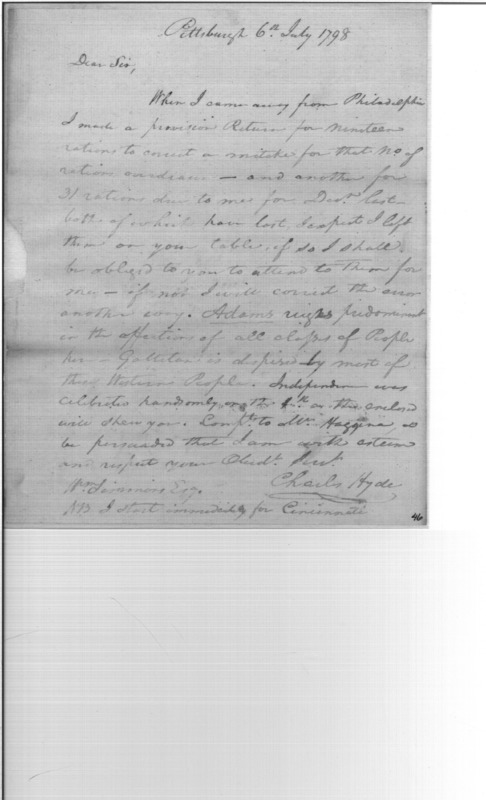 Pittsburgh 6th July 1798
Dear Sir,
When I came away from Philadelphia
I made a provision Return for nineteen
rations to correct a mistake for that No of
rations overdrawn — and another for
31 rations due to me for Decr. last
both of which have lost, I expect I left
them on your table, if so I shall
be obliged to you to attend to them for
me — if not I will correct the error
another way. Adams reigns predominant
in the affections of all classes of People
here — Gallatan is dispised by most of
the Western People. Independence was
celibrated handsomely on the 4th as the enclosed
will shew you. Compts to Mr. Haggins &
be persuaded that I am with esteem
and respect your Obedt. Servt.
Charles Hyde
Wm Simmons Esq.
NB I start immediately for Cincinnati
46